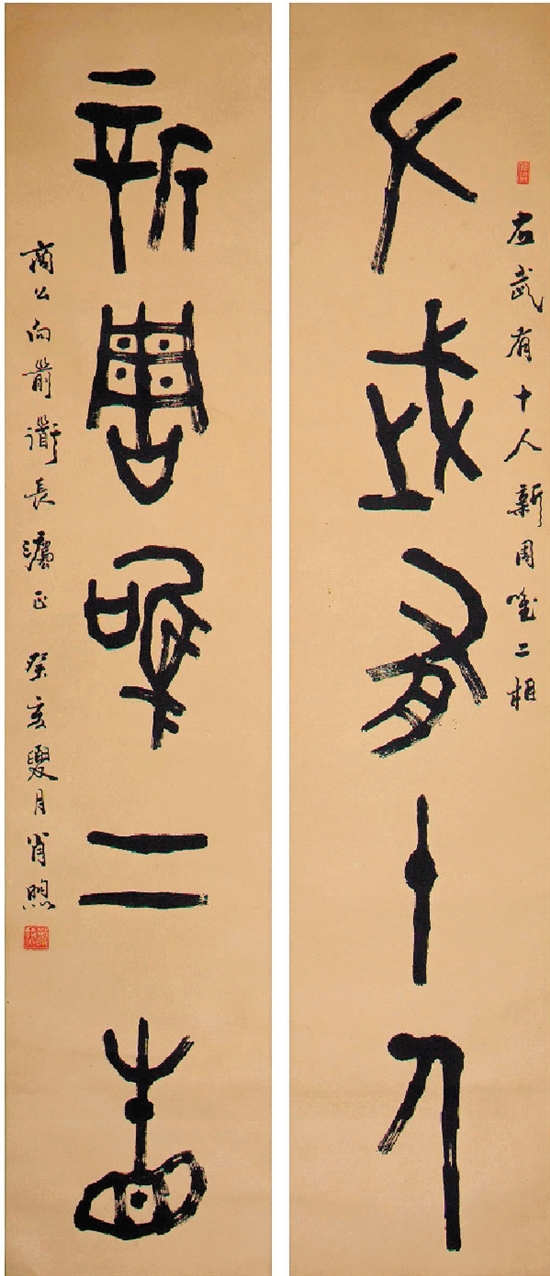 左武有十人
左武有十人新周唯二相
新周唯二相
商公向前衟長灋正 癸亥夏月肖煦